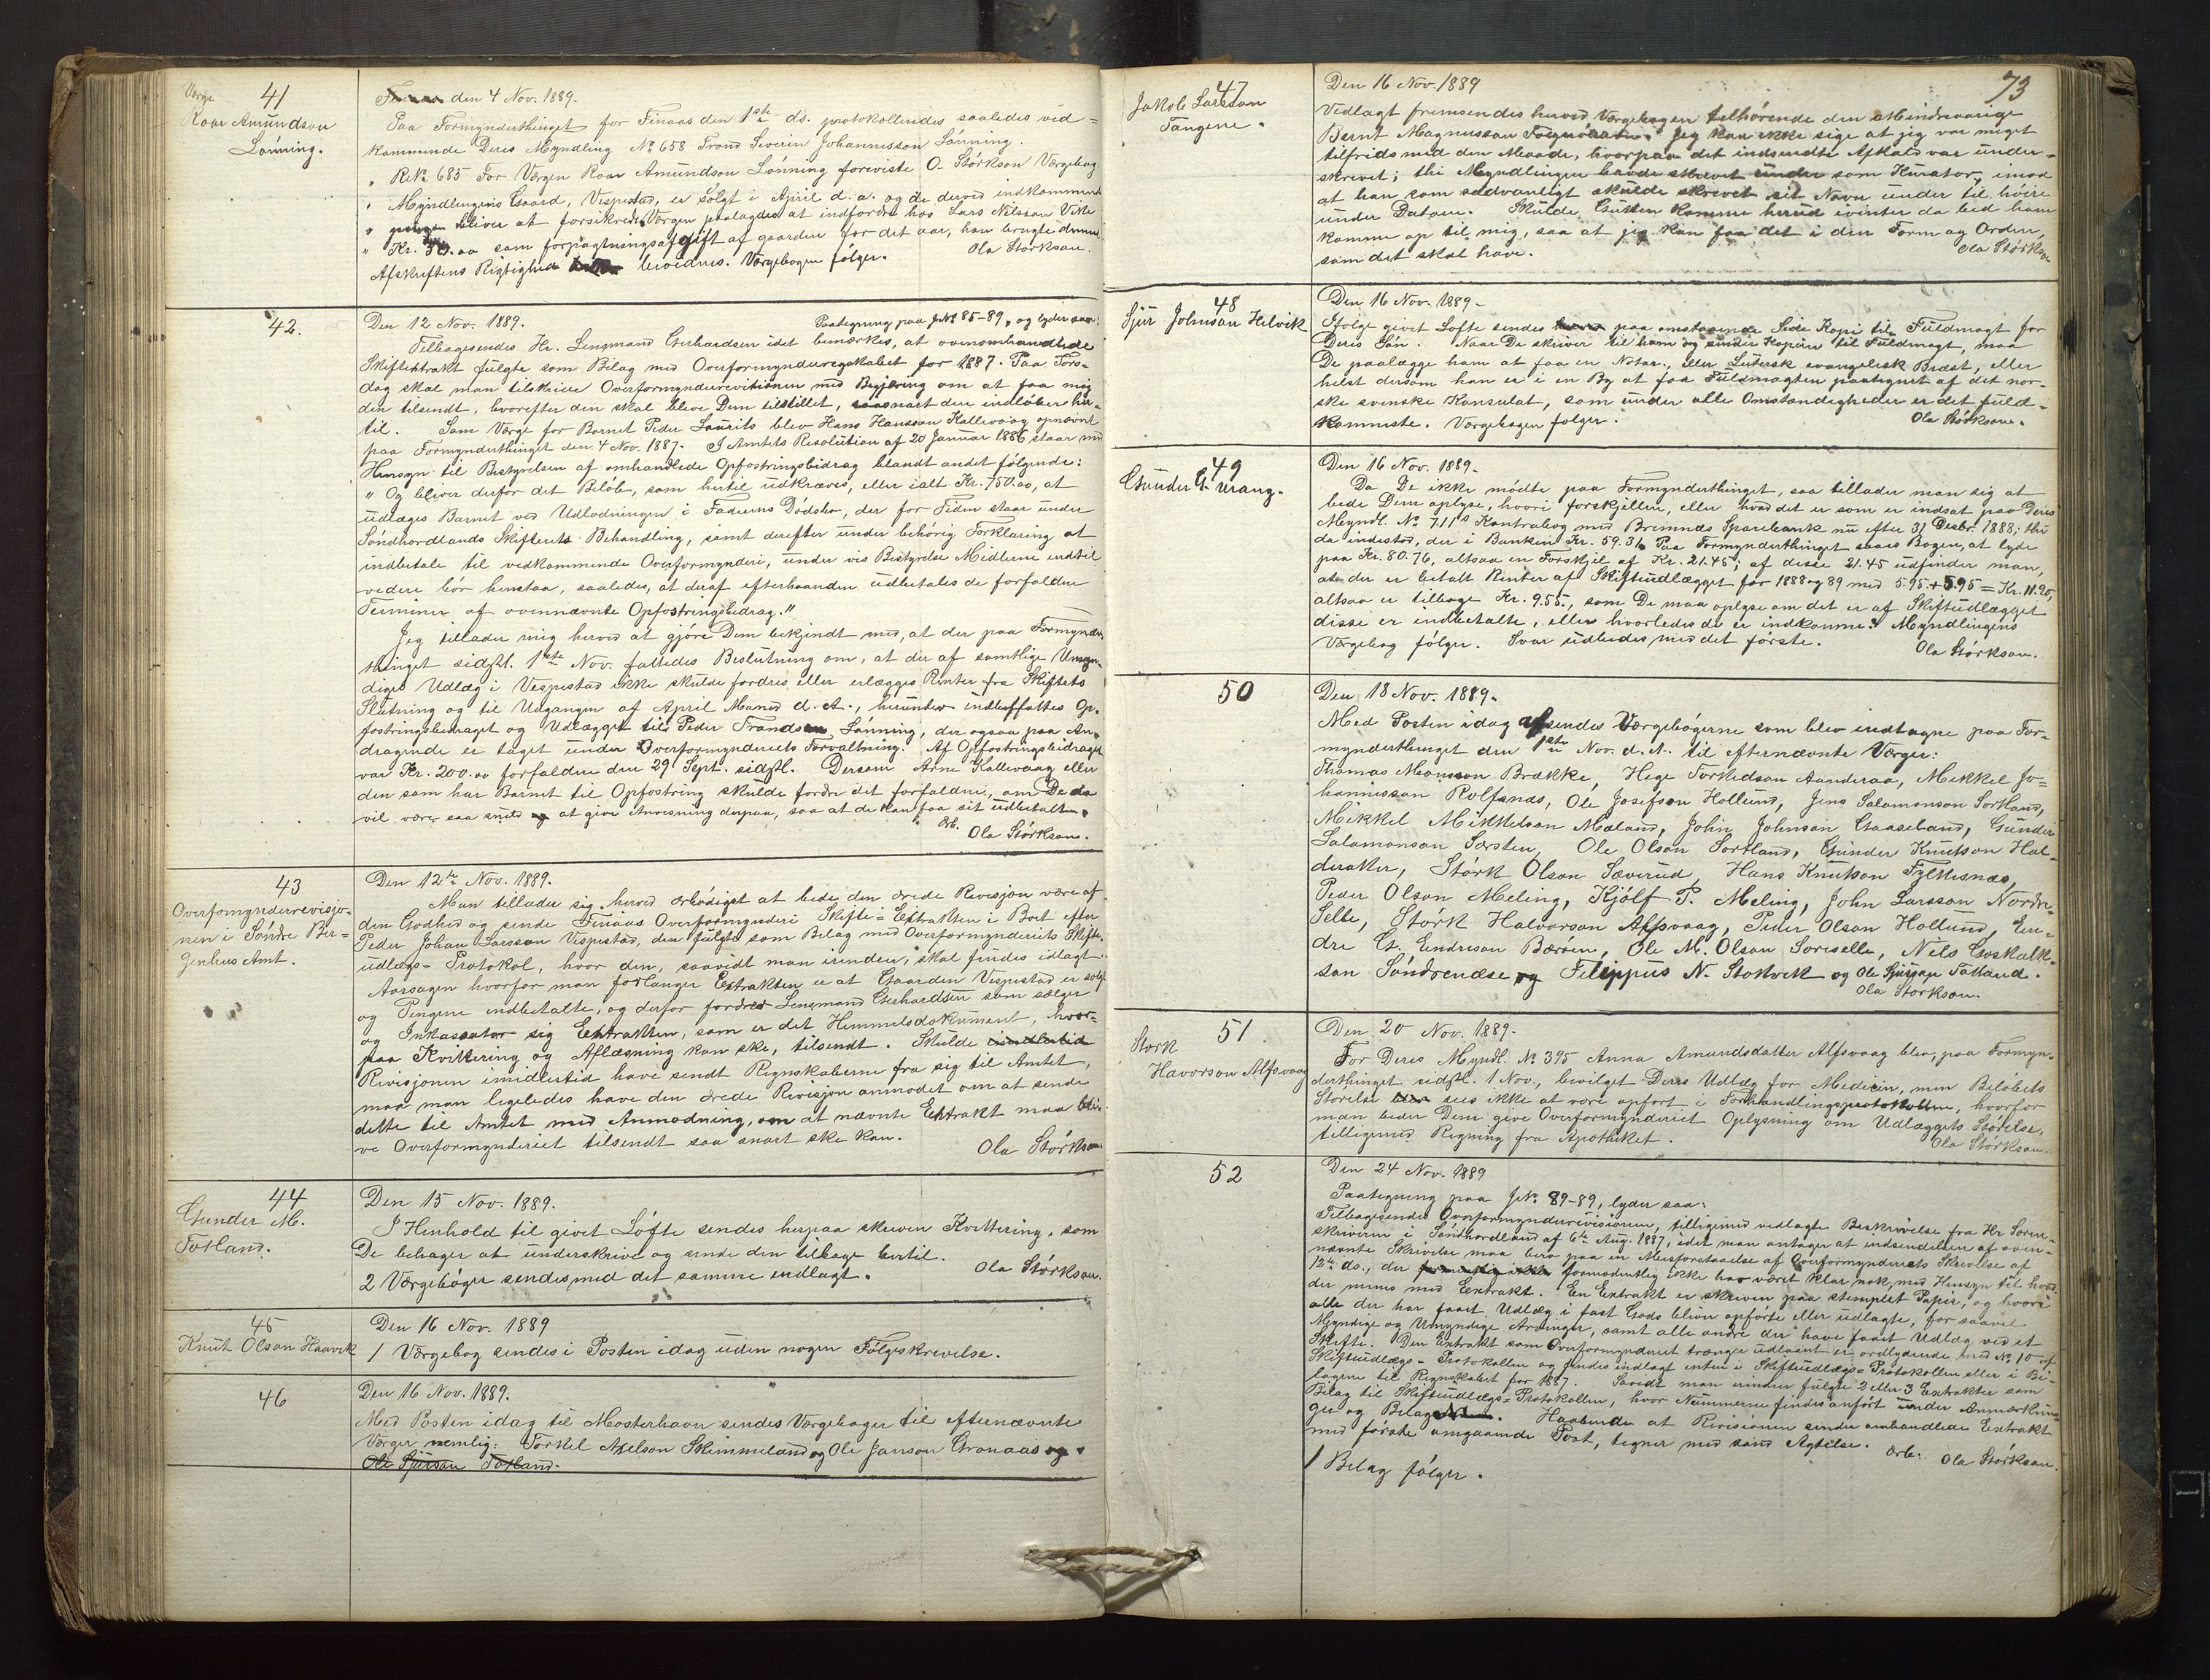 Værge 41
Roar Amundson
Lønning.
den 4 Nov. 1889.
Paa Formynderthinget for Finaas den 1ste ds. protokolleredes saaledes ved-
kommende Deres Myndling No 658 Trond Severin Johannesson Lønning.
" ReNo 685 For Værgen Roar Amundson Lønning foreviste O. Størkson Værgebog
" Myndlingens Gaard, Vespestad, er solgt i April d. a. og de derved indkommende
" penge bliver at forsikrede. Værgen paalagdes at indfordre hos Lars Nilsson Vike
" Kr. 30.00 som forpagtningsafgift af gaarden for det aar, han brugte denne.
Afskriftens Rigtighed bevidnes. Værgebogen følger. Ola Størkson.
42.
Den 12 Nov. 1889. Paategning paa JNo 85-89, og lyder saa:
Tilbagesendes Hr. Lensmand Gerhardsen idet bemærkes, at ovenomhandlede
Skifteextrakt fulgte som Bilag med Overformynderregnskabet for 1887. Paa Tors-
dag skal man tilskrive Overformynderrevisionen med Begjæring om at faa mig
den tilsendt, hvorefter den skal blive Dem tilstillet, saasnart den indløber her-
til. Som Værge for Barnet Peder Laurits blev Hans Hansson Kallevaag opnævnt
paa Formynderthinget den 4 Nov. 1887. I Amtets Resolution af 20 Januar 1886 staar med
Hensyn til Bestyrelsen af omhandlede Opfostringsbidrag blandt andet følgende:
" Og bliver derfor det Beløb, som hertil udkræves, eller ialt Kr. 750.00, at
udlægges Barnet ved Udlodningen i Faderens Dødsbo, der for Tiden staar under
Søndhordlands Skifterets Behandling, samt derefter under behørig Forklaring at
indbetale til vedkommende Overformynderi, under vis Bestyrelse Midlerne indtil
videre bør henstaa, saaledes, at deraf efterhaanden udbetales de forfaldne
Terminer af ovennævnte Opfostringsbidrag."
Jeg tillader mig herved at gjøre Dem bekjendt med, at der paa Formynder-
thinget sidstl. 1ste Nov. fattedes Beslutning om, at der af samtlige Umyn-
diges Udlæg i Vespestad ikke skulde fordres eller erlægges Renter fra Skiftets
Slutning og til Udgangen af April Maaned d. A., herunder indbefattes Op-
fostringsbidraget og Udlægget til Peder Trondson Lønning, der ogsaa paa An-
dragende er taget under Overformynderiets Forvaltning. Af Opfostringsbidraget
var Kr. 200.00 forfaldne den 29 Sept. sidstl. Dersom Arne Kallevaag eller
den som har Barnet til Opfostring skulde fordre det forfaldne, om De da
vil være saa snild at give Anvisning derpaa, saa at de kan faa sit udbetalt.
Erb. Ola Størkson.
43
Overfomynderrevisjo-
nen i Søndre Ber-
genhus Amt.
Den 12te Nov. 1889.
Man tillader sig herved ærbødigst at bede den ærede Revisjon være af
den Godhed og sende Finaas Overformynderi Skifte-Extrakten i Boet efter
Peder Johan Larsson Vespestad, den fulgte som Bilag med Overformynderiets Skifte-
udlægs-Protokol, hvor den, saavidt man erindrer, skal findes idlagt.
Aarsagen hvorfor man forlanger Extrakten er at Gaarden Vespestad er solgt
og Pengene indbetalte, og derfor fordrer Lensmand Gerhardsen som sælger
og Inkassator sig Extrakten, som er det Hemmelsdokument, hvor-
paa Kvittering og Aflæsning kan ske, tilsendt. Skulde
Revisjonen imidlertid have sendt Regnskaberne fra sig til Amtet,
maa man ligeledes have den ærede Revisjon anmodet om at sende
dette til Amtet med Anmodning, om at nævnte Extrakt maa bli-
ve Overformynderiet tilsendt saa snart ske kan. Ola Størkson
44
Gunder M.
Totland.
Den 15 Nov. 1889.
I Henhold til givet Løfte sendes herpaa skreven Kvittering, som
De behager at underskrive og sende den tilbage hertil.
2 Værgebøger sendes med det samme indlagt. Ola Størkson.
45
Knut Olson Haavik
Den 16 Nov. 1889
1 Værgebog sendes i Posten idag uden nogen Følgeskrevelse.
46
Den 16 Nov. 1889.
Med Posten idag til Mosterhavn sendes Værgebøger til efternævnte
Værger nemlig: Torkel Axelson Skimmeland og Ole Janson Grønaas og
Ole Sjurson Totland.
73
47
Jakob Larsson
Tangene.
Den 16 Nov. 1889
Vedlagt fremsendes herved Værgebogen tilhørende den Mindreaarige
Bernt Magnusson. Jeg kan ikke sige at jeg var meget
tilfreds med den Maade, hvorpaa det indsendte Afkald var under-
skrevet; thi Myndlingen havde skrevet under som Kurator, imod
at han som sædvanligt skulde skrevet sit Navn under til høire
under Datoen. Skulde Gutten komme herud ivinter da bed ham
komme op til mig, saa at jeg kan faa det i den Form og Orden,
som det skal have. Ola Størkson
48
Sjur Johnson Helvik
Den 16 Nov. 1889.
Ifølge givet Løfte sendes paa omstaaende Side Kopi til Fuldmagt for
Deres Søn. Naar De skriver til ham og sender Kopien til Fuldmagt, maa
De paalægge ham at faa en Notar., eller Lutersk evangelisk Præst, eller
helst dersom han er i en By at faa Fuldmagten paategnet af det nor-
ske svenske Konsulat, som under alle Omstændigheder er det fuld-
komneste. Værgebogen følger. Ola Størkson.
49
Gunder G. Urang.
Den 16 Nov. 1889.
Da De ikke mødte paa Formynderthinget, saa tillader man sig at
bede Dem oplyse, hvori forskjellen, eller hvad det er som er indsat paa Deres
Myndl. No 711s Kontrabog med Bremnæs Sparebank nu efter 31 Desbr. 1888; thi
da indestod, der i Banken Kr. 59.31. Paa Formynderthinget saaes Bogen, at lyde
paa Kr. 80.76, altsaa en Forskjel af Kr. 21.45; af disse 21.45 udfinder man,
at der er betalt Renter af Skifteudlægget for 1888 og 89 med 5.95+5.95=Kr. 11.90,
altsaa er tilbage Kr. 9.55., som De maa oplyse om det er af Skifteudlægget
disse er indbetalte, eller hvorledes de er indkomne. Myndlingens
Værgebog følger. Svar udbedes med det første. Ola Størkson.
50
Den 18 Nov. 1889.
Med Posten idag afsendes Værgebøgerne som blev indtagne paa For-
mynderthinget den 1ste Nov. d. A. til efternævnte Værger:
Thomas Monsson Brække, Hege Torkedson Aanderaa, Mikkel Jo-
hannesson Rolfsnæs, Ole Josefson Hollund, Jens Salomonson Sortland,
Mikkel Mikkelson Mæland, John Johnson Gaaseland, Gunder
Salomonson Sørsten, Ole Olson Sortland, Gunder Knutson Hal-
deraker, Størk Olson Sæverud, Hans Knutson Fylkesnæs,
Peder Olson Meling, Kjølf P. Meling, John Larsson Nordre-
Selle, Størk Halvorson Alfsvaag, Peder Olson Hollund, En-
dre G. Endreson Børøen, Ole M. Olson Sorselle, Nels Goskalk-
son Søndrenæse og Filippus N. Stokvik og Ole Sjurson Totland.
Ola Størkson.
51
Størk
Havorson Alfsvaag
Den 20 Nov. 1889.
For Deres Myndl. No 395 Anna Amundsdatter Alfsvaag blev, paa Formyn-
derthinget sidstl. 1 Nov., bevilget Deres Udlæg for Medicin, men Beløbets
Størelse sees ikke at være opført i Forhandlingsprotokollen, hvorfor
man beder Dem give Overformynderiet Oplysning om Udlæggets Størelse,
tilligemed Regning fra Apotheket. Ola Størkson.
52
Den 24 Nov. 1889
Paategning paa JNo 89-89, lyder saa:
Tilbagesendes Overformynderrevisionen, tilligemed vedlagte Beskrivelse fra Hr Soren-
skriveren i Søndhordland af 6te Aug. 1887, idet man antager at indsendelsen af oven-
nævnte Skrivelse maa bero paa en Misforstaaelse af Overformynderiets Skrivelse af
12te ds., der formodentlig ikke har været klar nok, med Hensyn til hvad
der menes med Extrakt. En Extrakt er skreven paa stemplet Papir, og hvori
alle der har faaet Udlæg i fast Gods bliver opførte eller udlagte, for saavel
Myndige og Umyndige Arvinger, samt alle andre der have faaet Udlæg ved et
Skifte. Den Extrakt som Overformynderiet trænger udlaant er ordlydende med No 10 af
Skifteudlægs-Protokollen og findes indlagt enten i Skifteudlægs-Protokollen eller i Bi-
lagene til Regnskabet for 1887. Saavidt man erindrer fulgte 2 eller 3 Extrakter som
Bilag til Skifteudlægs-Protokollen, hvor Nummerne findes anført under Anmærknin-
ger og Bilag. Haabende at Revisionen sender omhandlede Extrakt
med første omgaaende Post, tegner med sand Agtelse. Ærb: Ola Størkson.
1 Bilag følger.